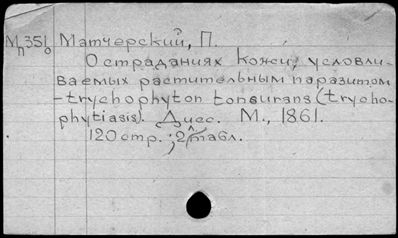 Мп 35/6 Матчерский, П.
О страданиях кожи, условли-
ваемых растительным паразитом
-trychophyton tonsurans (trycho-
phytiasis). Дисс. М., 1861.
120 стр.; 2 л. табл.